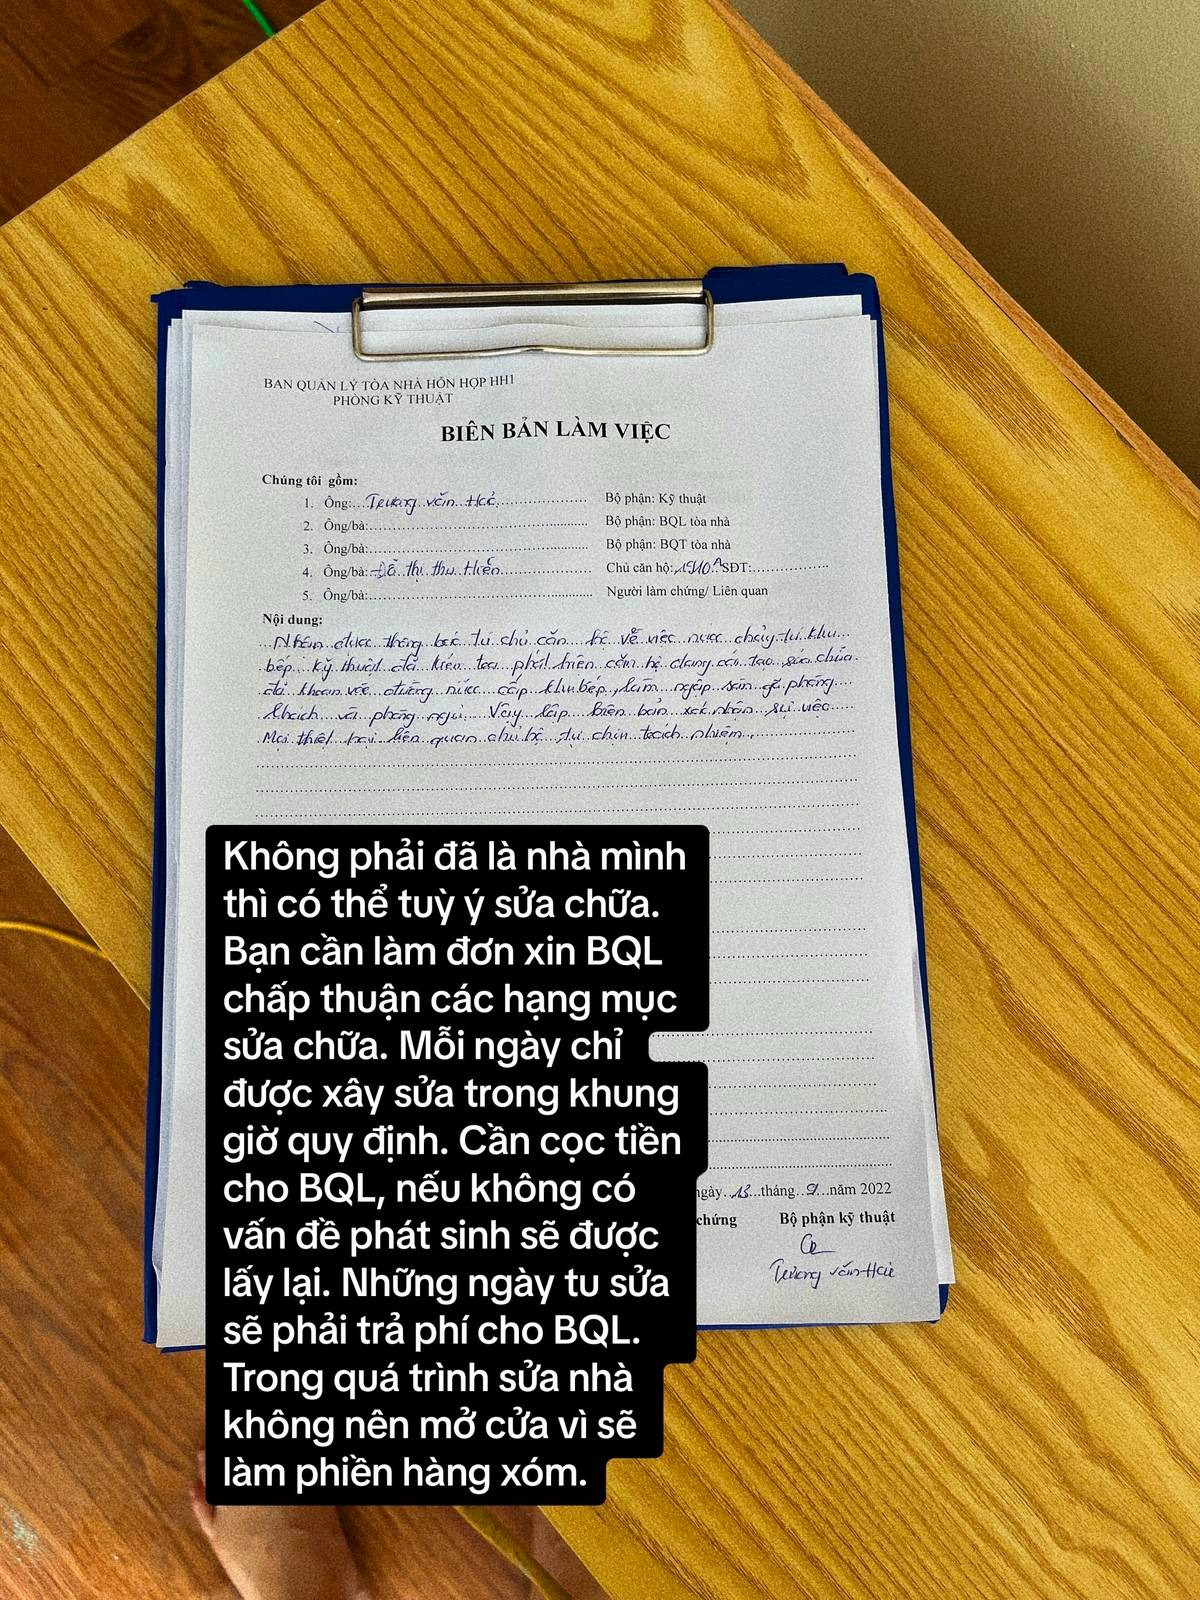 BAN QUẢN LÝ TÒA NHÀ HỖN HỢP HH1
PHÒNG KỸ THUẬT
BIÊN BẢN LÀM VIỆC
Chúng tôi gồm:
1. Ông: Trương văn Hai Bộ phận: Kỹ thuật
2. Ông/bà: Bộ phận: BQL tòa nhà
3. Ông/bà: Bộ phận: BQT tòa nhà
4. Ông/bà: Đỗ thị thu Hiền Chủ căn hộ: 1910A SĐT:
5. Ông/bà: Người làm chứng/ Liên quan
Nội dung:
Nhận được thông báo từ chủ căn hộ về việc nước chảy từ khu
bếp. Kỹ thuật đã kiểm tra phát hiện căn hộ đang cải tạo, sửa chữa
đã khoan vào đường nước cấp khu bếp, làm ngập sàn gỗ phòng
khách và phòng ngủ. Vậy lập biên bản xác nhận sự việc
Mọi thiệt hại liên quan chủ hộ tự chịu trách nhiệm.
Không phải đã là nhà mình
thì có thể tuỳ ý sửa chữa.
Bạn cần làm đơn xin BQL
chấp thuận các hạng mục
sửa chữa. Mỗi ngày chỉ
được xây sửa trong khung
giờ quy định. Cần cọc tiền
cho BQL, nếu không có
vấn đề phát sinh sẽ được
lấy lại. Những ngày tu sửa
sẽ phải trả phí cho BQL.
Trong quá trình sửa nhà
không nên mở cửa vì sẽ
làm phiền hàng xóm.
ngày 13 tháng 9 năm 2022
chứng Bộ phận kỹ thuật
Trương văn Hai